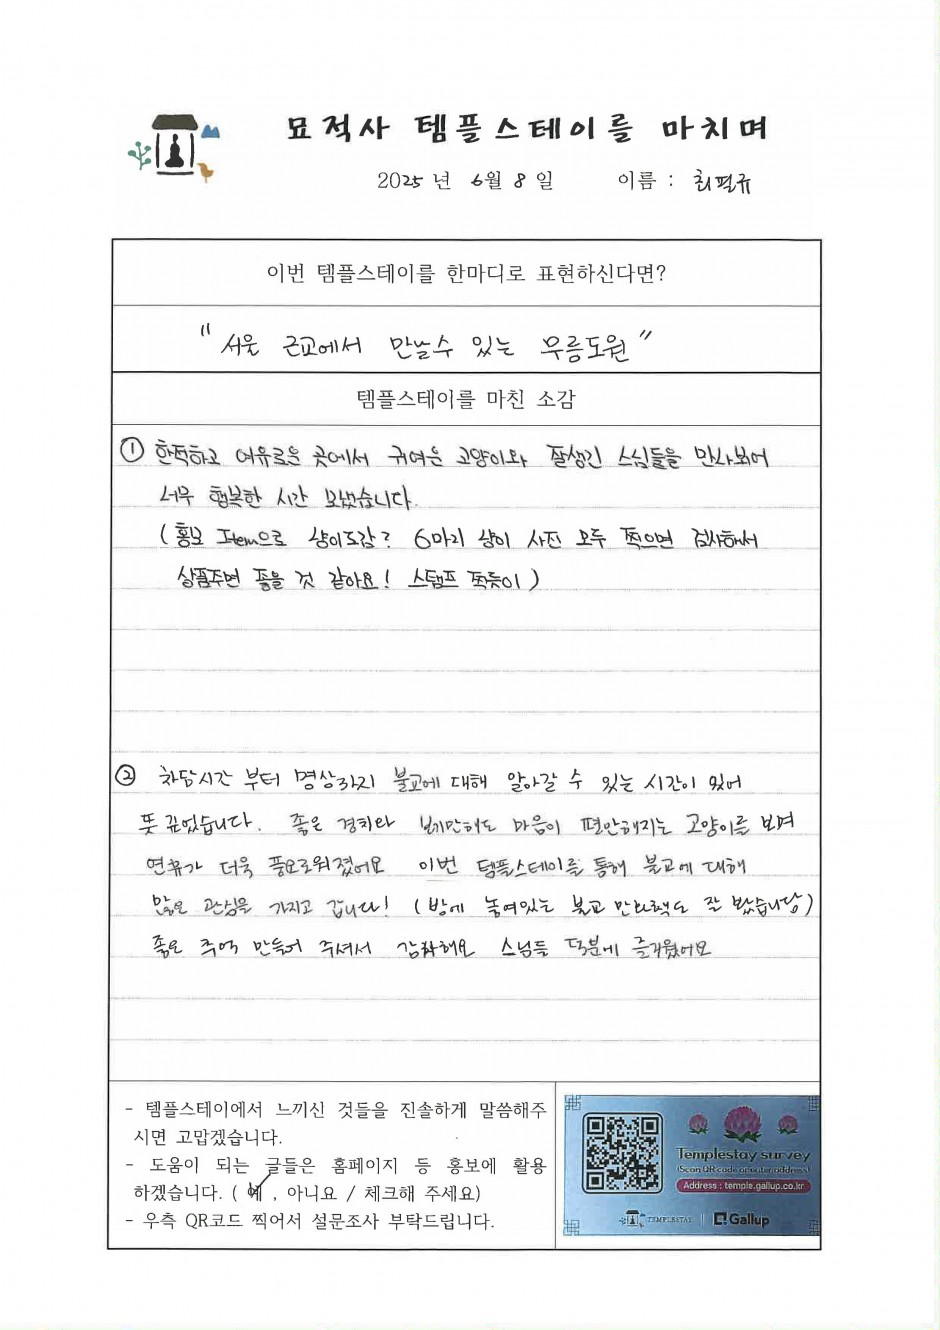 묘적사 템플스테이를 마치며
2025 년 6월 8 일 이름 : 최필규
이번 템플스테이를 한마디로 표현하신다면?
"서울 근교에서 만날수 있는 무릉도원"
템플스테이를 마친 소감
① 한적하고 여유로운 곳에서 귀여운 고양이와 잘생긴 스님들을 만나뵈어
너무 행복한 시간 보냈습니다.
(홍보 Item으로 냥이도감? 6마리 냥이 사진 모두 찍으면 검사해서
상품주면 좋을 것 같아요! 스탬프 찍듯이)
② 차담시간 부터 명상까지 불교에 대해 알아갈 수 있는 시간이 있어
뜻 깊었습니다. 좋은 경치와 보기만해도 마음이 편안해지는 고양이를 보며
연휴가 더욱 풍요로워졌어요 이번 템플스테이를 통해 불교에 대해
많은 관심을 가지고 갑니다! (방에 놓여있는 불교 만화책도 잘 봤습니당)
좋은 추억 만들어 주셔서 감사해요 스님들 덕분에 즐거웠어요
- 템플스테이에서 느끼신 것들을 진솔하게 말씀해주
시면 고맙겠습니다.
- 도움이 되는 글들은 홈페이지 등 홍보에 활용
하겠습니다. ( 예 , 아니요 / 체크해 주세요)
- 우측 QR코드 찍어서 설문조사 부탁드립니다.
Templestay survey
(Scan QR code or enter address)
Address : temple.gallup.co.kr
TEMPLESTAY Gallup